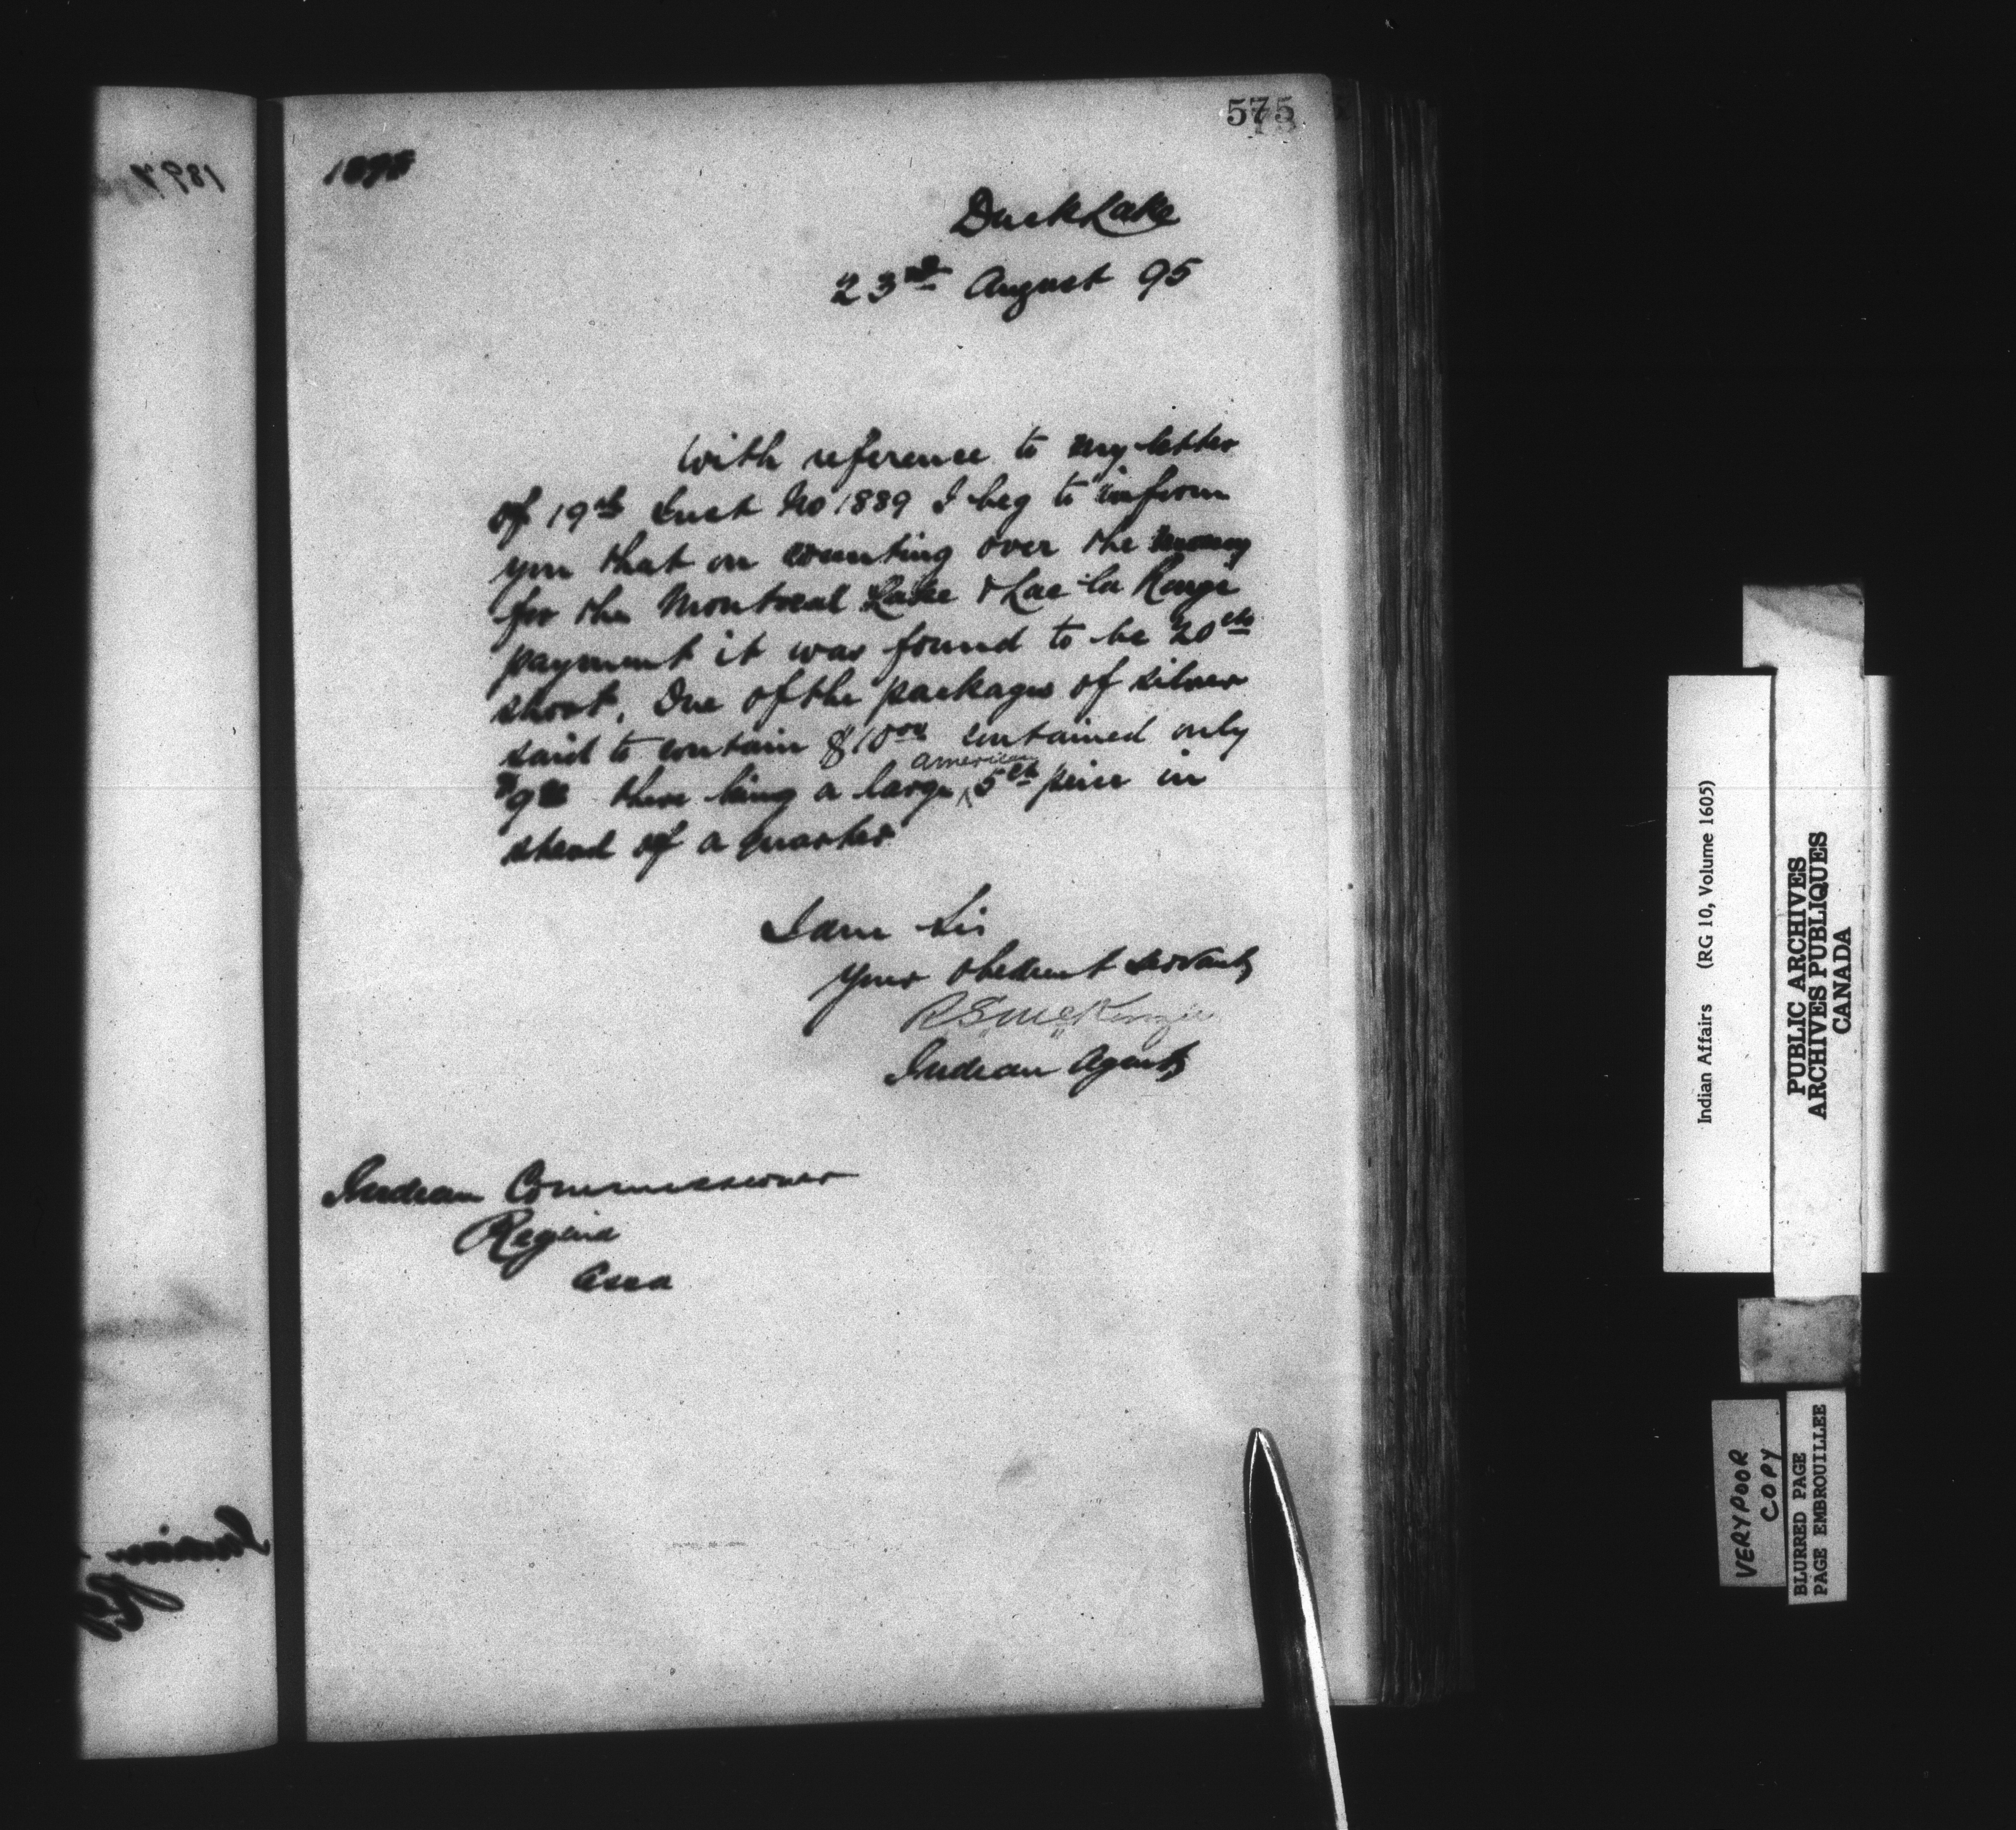 575
1898
Duck Lake
23rd August 95
With reference to my letter
of 19th Inst No 1889 I beg to inform
you that on counting over the money
for the Montreal Lake & Lac la Ronge
payment it was found to be 20cts
short. One of the packages of silver
said to contain $10.00 contained only
$9.80 there being a large American 5ct piece in
stead of a quarter
I am Sir
Your obedient servant
RS McKenzie
Indian Agent
Indian Commissioner
Regina
Assa
Indian Affairs (RG 10, Volume 1605)
PUBLIC ARCHIVES
ARCHIVES PUBLIQUES
CANADA
VERY POOR
COPY
BLURRED PAGE
PAGE EMBROUILLEE